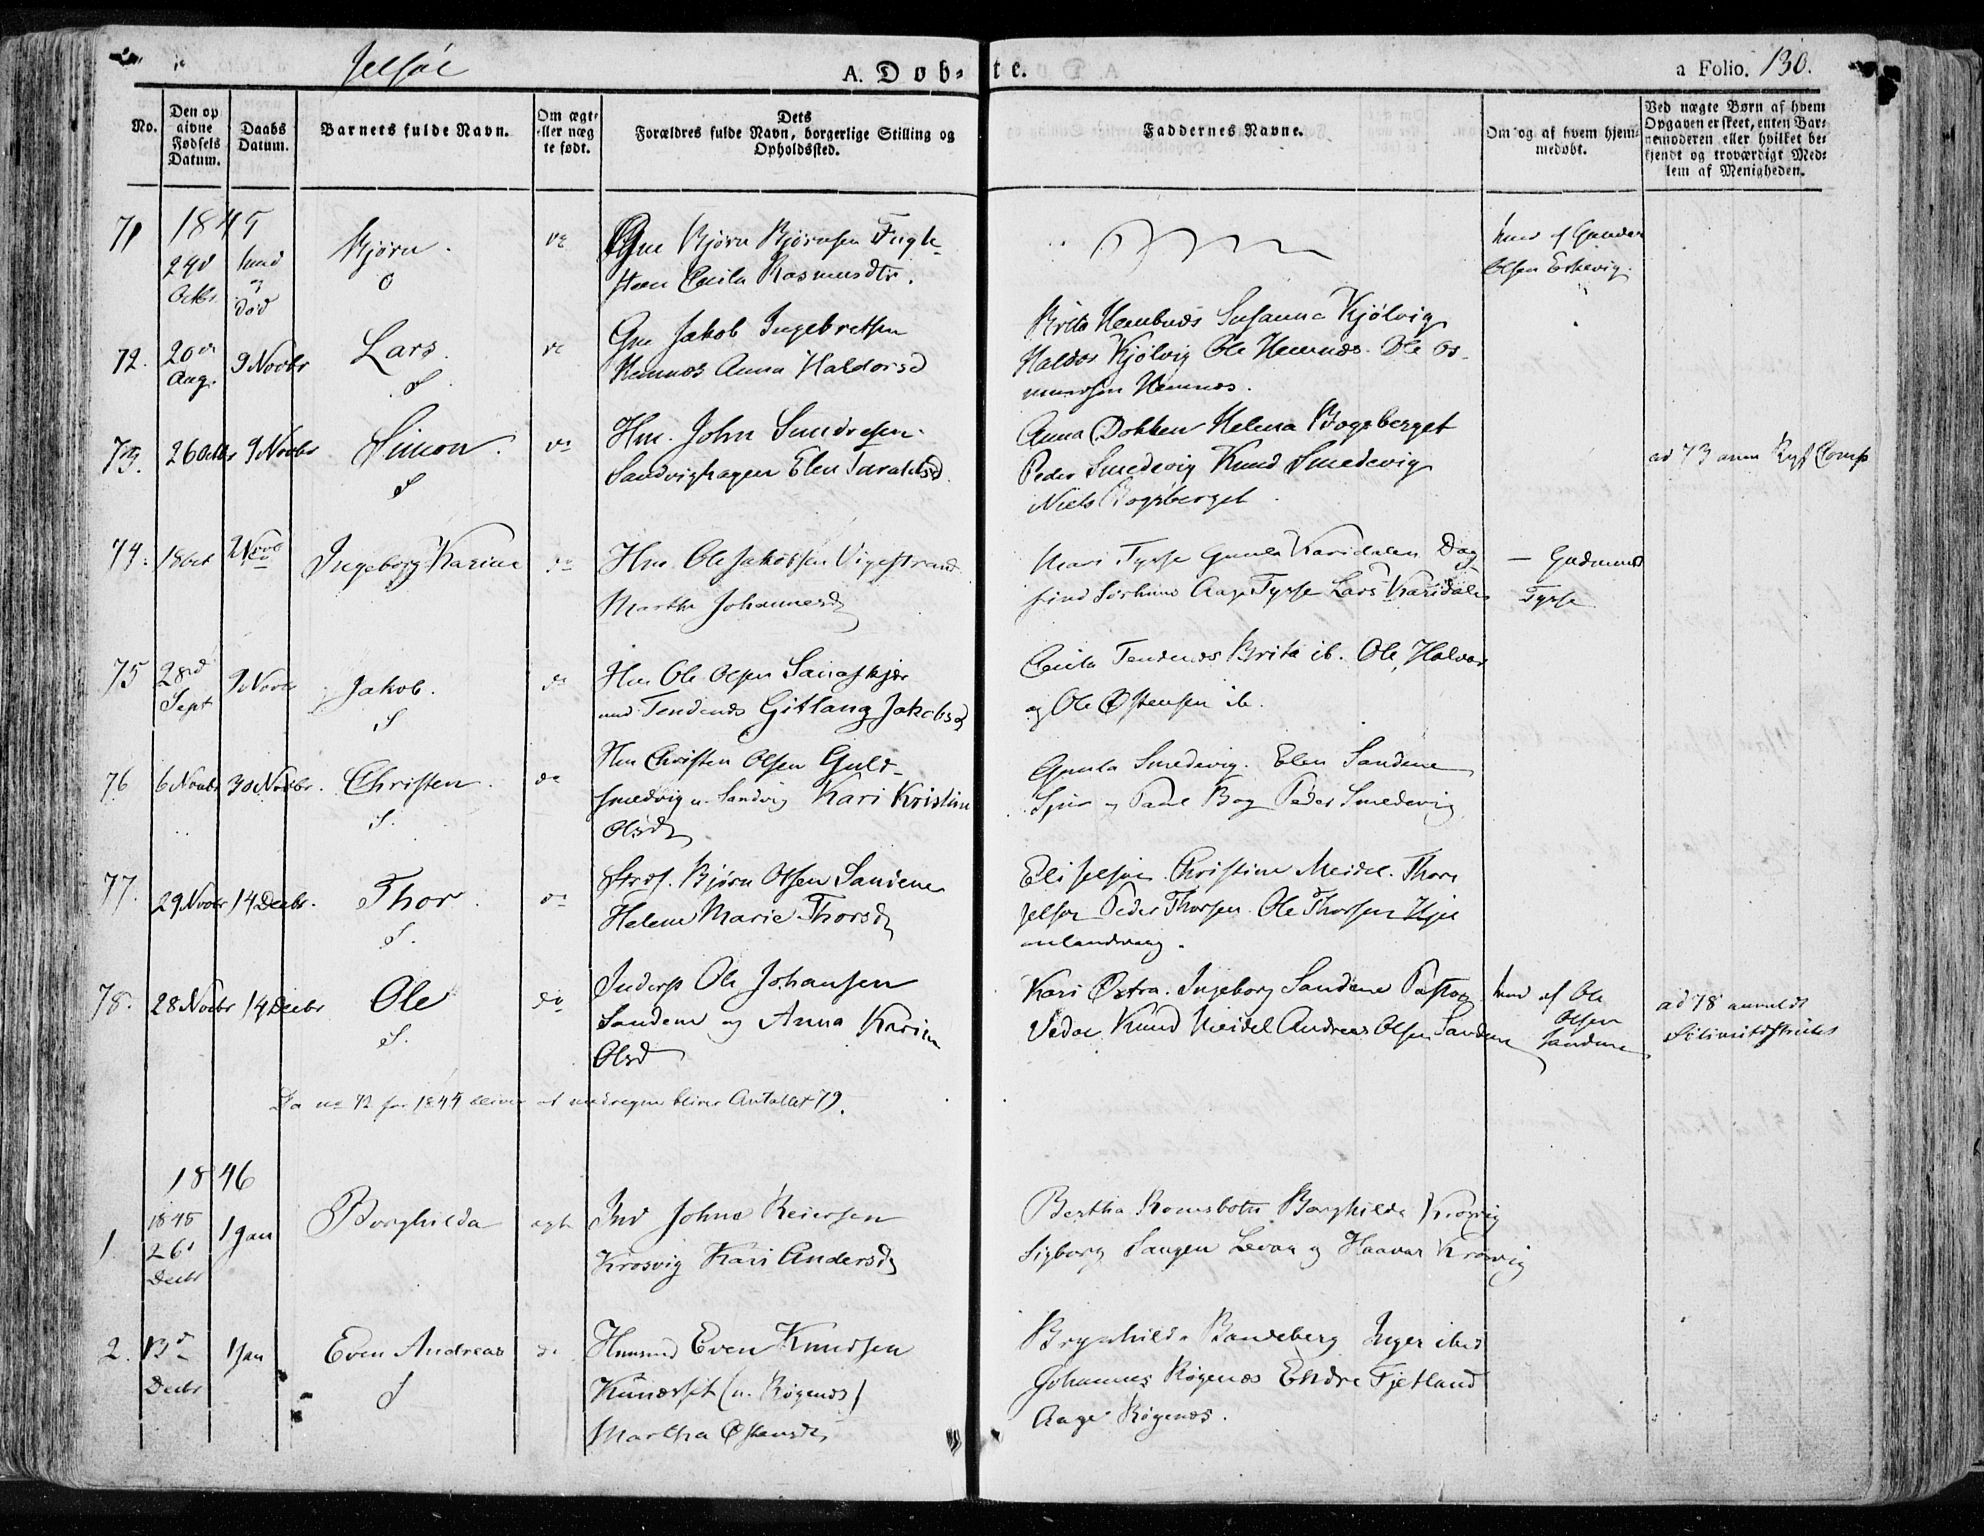 Jelsøe
A. Døb-te.
a Folio. 130.
No.
Den op
givne
Fødsels
Datum.
Daabs
Datum.
Barnets fulde Navn.
Om ægte
eller næg
te født.
Dets
Forældres fulde Navn, borgerlige Stilling og
Opholdssted.
Faddernes Navne.
Om og af hvem hjem-
medøbt.
Ved nægte Børn af hvem
Opgaven er skeet, enten Bar-
nemoderen eller hvilket be-
kjendt og troværdigt Med-
lem af Menigheden.
1845
71
29d
Octbr
hmd
og
død
Bjørn.
do
Gm Bjørn Bjørnsen Fugle-
steen Cecila Rasmusdtr.
hmd af Gunder
Olsen Eskevig.
72.
20de
Aug.
9 Novbr
Lars.
S
do
Gm Jakob Ingebretsen
Hemnæs Anna Haldorsd
Brita Hembnæs Susanna Kjølvig
Haldor Kjølvig Ole Hemnæs. Ole Os-
mundsen Hemnæs.
73.
26 Octbr
9 Novbr
Simon.
S
do
Hm. John Sendresen
Sandvighagen Elen Taraldsd.
Anna Dokken Helena Bogsberget
Peder Smedevig Knud Smedevig
Niels Bogsberget.
ad 73 anm Ryf Comp
74.
18 Oct
Novb
Ingeborg Karine
do
Hm. Ole Jakobsen Vigestrand
Martha Johannesd
Mari Tysse Gunla Karidalen Dag
find Sørhuus Aage Tysse Lars Karidalen
— Gudmund
Tysse
75
28d
Sept
9 Novbr
Jakob.
S
do
Hm Ole Olsen Sanaskjær
und. Tendenæs Gitlaug Jakobsd
Cecila Tendenæs Brita ib. Ole, Halvor
og Ole Østensen ib.
76
6 Novbr
30 Novbr.
Christen.
S.
do
Hm Christen Olsen Guld-
smedvig u. Sandvig Kari Kristine
Olsd
Gunla Smedevig. Elen Sandene
og Paul Bog Peder Smedevig
77.
29 Novbr
14 Decbr.
Thor.
S.
do
Strds. Bjørn Olsen Sandene
Helene Marie Thorsd
Eli Jelsøe Christine Meidel. Thore
Jelsøe Peder Thorsen. Ole Thorsen Hjel
mlandsvang.
78.
28 Novbr
14 Decbr
Ole
S.
do
Inderst Ole Johansen
Sandene og Anna Karine
Olsd
Kari Østra. Ingeborg Sandene Pastor
Vedøe Knud Meidel Andreas Olsen Sandene
hmd af Ole
Olsen
Sandene
ad 78 anmeldt
Da no 72 for 1844 bliver at medregne bliver Antallet 79.
1846
1.
1845
26d
Decbr
1 Jan
Borghilda
ægte
Ind Johne Reiersen
Krosvig Kari Andersd
Bertha Romsbotn Borghilda Krosvig
Sigborg Saugen Levor og Haavar Krosvig
2.
13d
Decbr
1 Jan
Even Andreas
S
do
Huusmd Even Knudsen
Kunerset (u. Røgenæs)
Martha Østensd
Brynhilda Bandeberg Inger ibid
Johannes Røgenæs Endre Fjetland
Aage Røgenæs.